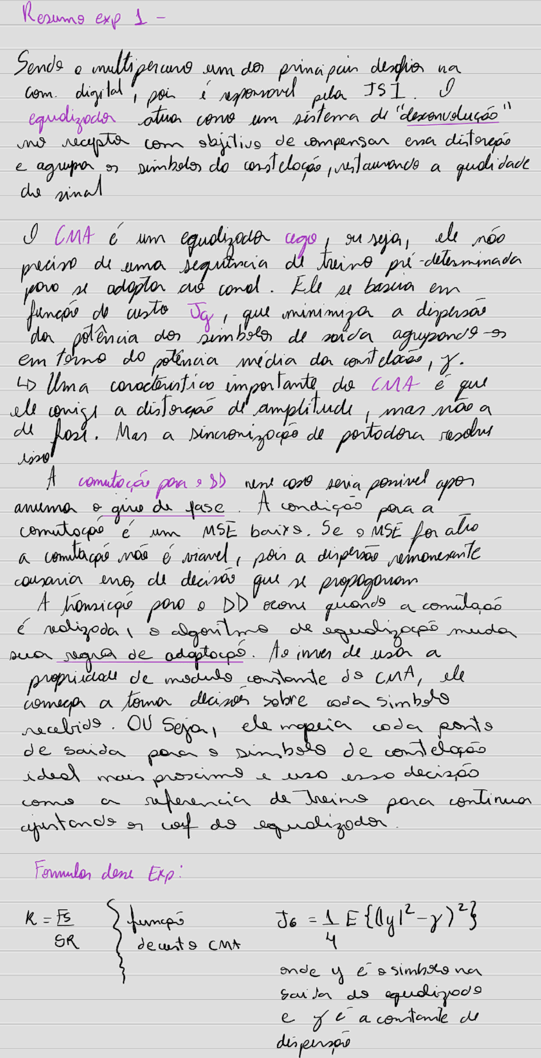 Resumo exp 1 -
Sendo o multipercurso um dos principais desafios na
com. digital, pois é responsável pela ISI. O
equalizador atua como um sistema de "desconvolução"
no receptor com objetivo de compensar essa distorção
e agrupar os símbolos da constelação, restaurando a qualidade
do sinal
O CMA é um equalizador cego, ou seja, ele não
precisa de uma sequência de treino pré-determinada
para se adaptar ao canal. Ele se baseia em
função de custo Jg, que minimiza a dispersão
da potência dos símbolos de saída agrupando-os
em torno da potência média da constelação, γ.
↳ Uma característica importante do CMA é que
ele corrige a distorção de amplitude, mas não a
de fase. Mas a sincronização de portadora resolve
isso
A comutação para o DD nesse caso seria possível apos
o giro de fase. A condição para a
comutação é um MSE baixo. Se o MSE for alto
a comutação não é viavel, pois a dispersão remanescente
causaria erros de decisão que se propagariam
A transição para o DD ocorre quando a comutação
é realizada, o algoritmo de equalização muda
sua regra de adaptação. Ao inves de usar a
propriedade de modulo constante do CMA, ele
começa a tomar decisões sobre cada simbolo
recebido. OU Seja, ele mapeia cada ponto
de saida para o simbolo de constelação
ideal mais proximo e usa essa decisão
como a referencia de treino para continuar
ajustando os coef do equalizador.
Formulas desse Exp:
K = Fs/SR } função de custo CMA
J6 = 1/4 E{(|y|² - γ)²}
onde y é o simbolo na
saida do equalizado
e γ é a constante de
dispersão